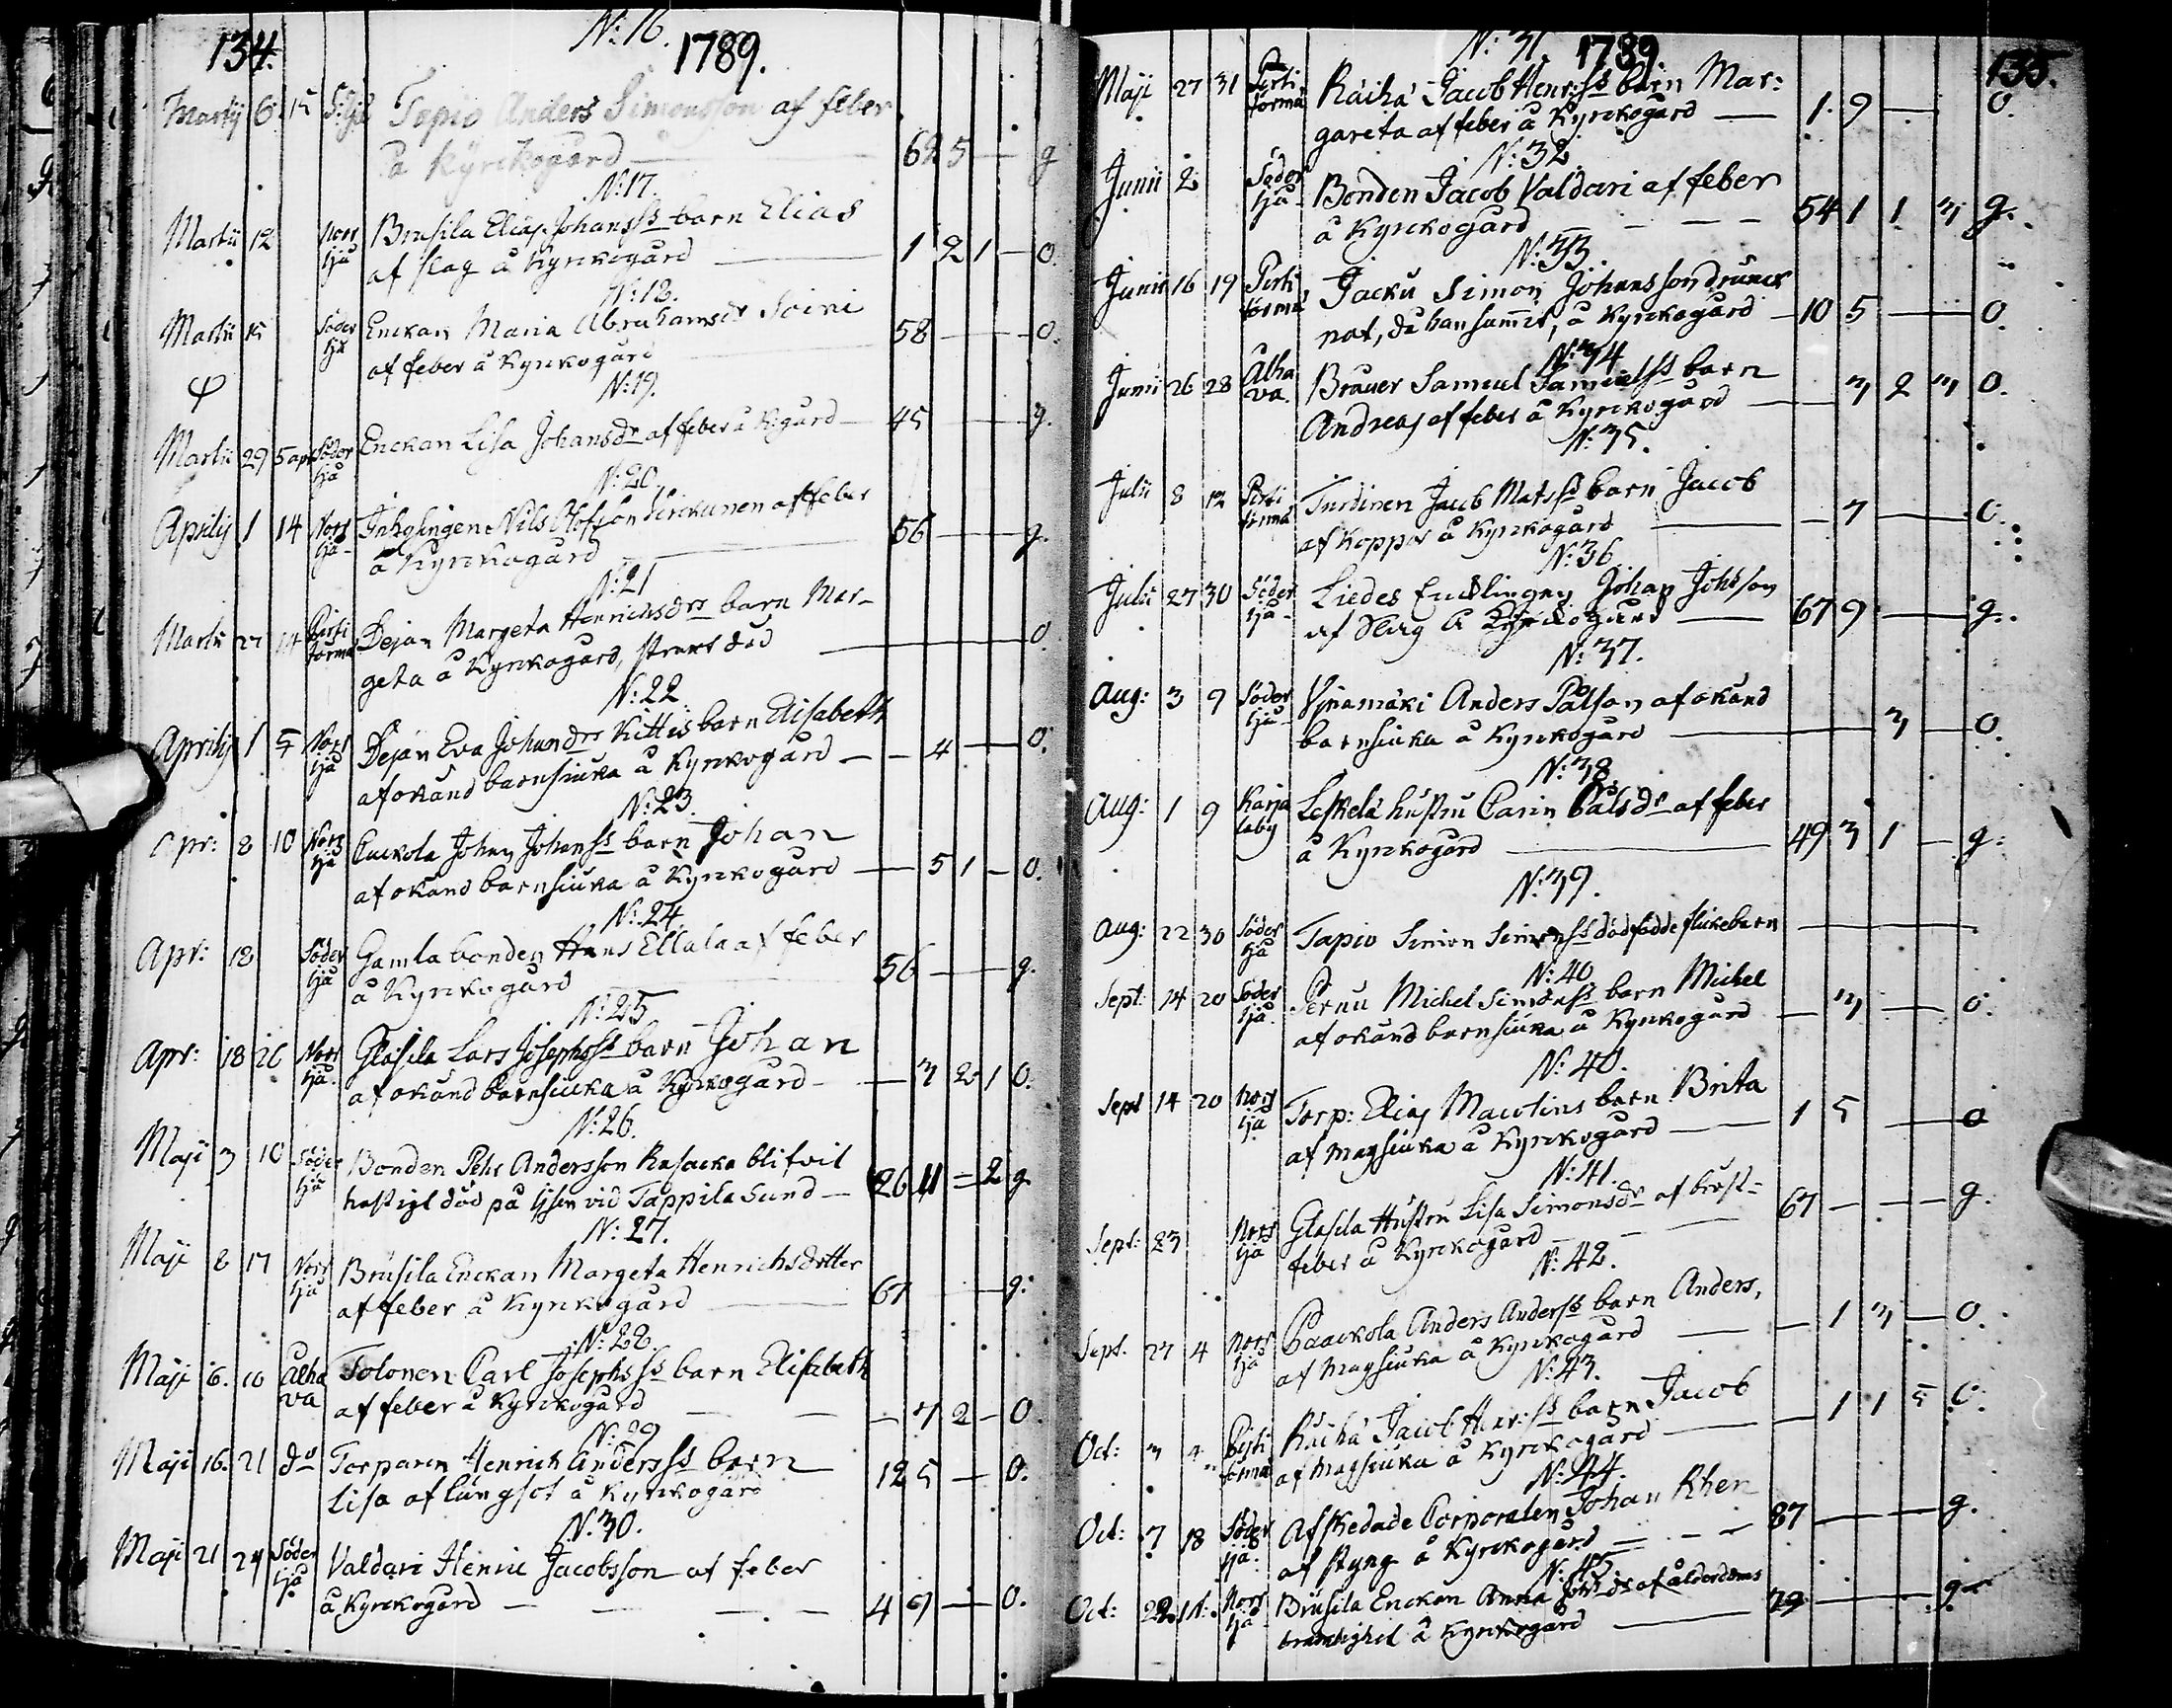 134.
N: 16.
1789.
Martij 6. 15 Tapio Anders Simonsson af feber
å Kyrckogård 62 5 g
N: 17.
Martii 12 Norr ijå Brusila Elias Johanss barn Elias
af slag å Kyrckogård 1 2 1 0.
N: 18.
Martii 15 Söder ijå Enckan Maria Abrahamsdr Soini
af feber å Kyrckogård 58 0.
N: 19.
Martii 29 5 apr Söder ijå Enckan Lisa Johansdr af feber å K:gård 45 g.
N: 20.
Aprilij 1 14 Norr ijå Inhysingen Nils Olofsson af feber
å Kyrckogård 56 g.
N: 21
Martii 27 14 Pirti torma Pejan Margeta Henrichsdrs barn Mar-
geta å Kyrckogård, strart död 0
N: 22
Aprilij 1 5 Norr ijå Pejan Eva Johansdrs Kittis barn Elisabeth
af okänd barnsiuka å Kyrckogård 4 0.
N: 23.
Apr: 8 10 Norr ijå Johan Johanss barn Johan
af okänd barnsiuka å Kyrckogård 5 1 0.
N: 24.
Apr: 18 Söder ijå Gamla bonden Hans Ellala af feber
å Kyrckogård 56 g.
N: 25
Apr: 18 26 Norr ijå Glasila Lars Josephss barn Johan
af okänd barnsiuka å Kyrckogård 3 2 1 0.
N: 26.
Maji 3 10 Söder ijå Bonden Pehr Andersson Kasacka blifvit
hastigt död på Ijsen vid Tappila Sund 26 11 = 2 g
N: 27.
Maji 8 17 Norr ijå Brusila Enckan Margeta Henrichsdotter
af feber å Kyrckogård 67 g.
N: 28.
Maji 6. 10 Alha va Tolonen Carl Josephss barn Elisabeth
af feber å Kyrckogård 7 2 0.
N: 29
Maji 16. 21 do Torparen Henrich Anderss barn
Lisa af lungsot å Kyrckogård 12 5 0.
N. 30.
Maji 21 24 Söder ijå Valdari Henric Jacobsson af feber
å Kyrckogård 4 9 0.
N: 31.
1789.
135.
Maji 27 31 Pirti torma Räihä Jacob Henr:ss barn Mar:
gareta af feber å Kyrckogård 1. 9 0.
N: 32
Junii 2 Söder ijå Bonden Jacob Valdari af feber
å Kyrckogård 54 1 1 3 g.
N: 33.
Junii 16 19 Pirti torma Jacku Simon Johansson drunck
nat, då han summit, å Kyrckogård 10 5 0.
N: 34
Junii 26 28 Alha va. Bräuer Samuel Samuelss barn
Andreas af feber å Kyrckogård 3 2 3 0.
N: 35.
Julii 8 12 Pirti torma Turdinen Jacob Matss barn Jacob
af koppor å Kyrckogård 7 0.
N: 36
Julii 27 30 Söder ijå Liedes Johan Johsson
af Slag å Kyrckogård 67 9 g.
N: 37.
Aug: 3 9 Söder ijå Anders Pålson af okänd
barnsiuka å Kyrckogård 3 0.
N: 38.
Aug: 1 9 Karja laby Leskelä hustru Carin Pålsdr af feber
å Kyrckogård 49 3 1 g.
N: 39.
Aug: 22 30 Söder ijå Tapio Simon Simonss dödfödde flickebarn
N: 40
Sept: 14 20 Söder ijå Pernu Michel Simonss barn Michel
af okänd barnsiuka å Kyrckogård 3 0.
N: 40.
Sept 14 20 Norr ijå Torp: Elias Mautins barn Brita
af magsiuka å Kyrckogård 1 5 0
N: 41.
Sept: 23 Norr ijå Glasila Hustru Lisa Simonsdr af bröst=
feber å Kyrckogård 67 g.
N: 42.
Sept. 27 4 Norr ijå Paackola Anders Anderss barn Anders,
af magsiuka å Kyrckogård 1 3 0.
N: 43.
Oct: 3 4 Pirti torma Räihä Jacob Henr:ss barn Jacob
af magsiuka å Kyrckogård 1 1 5 0.
N: 44.
Oct: 7 18 Söder ijå Afskedade Corporalen Johan Rhen
af styng å Kyrckogård 87 g.
N: 45
Oct: 22. Norr ijå Brusila Enckan Anna af ålderdoms
bräcklighet å Kyrckogård 79 g.